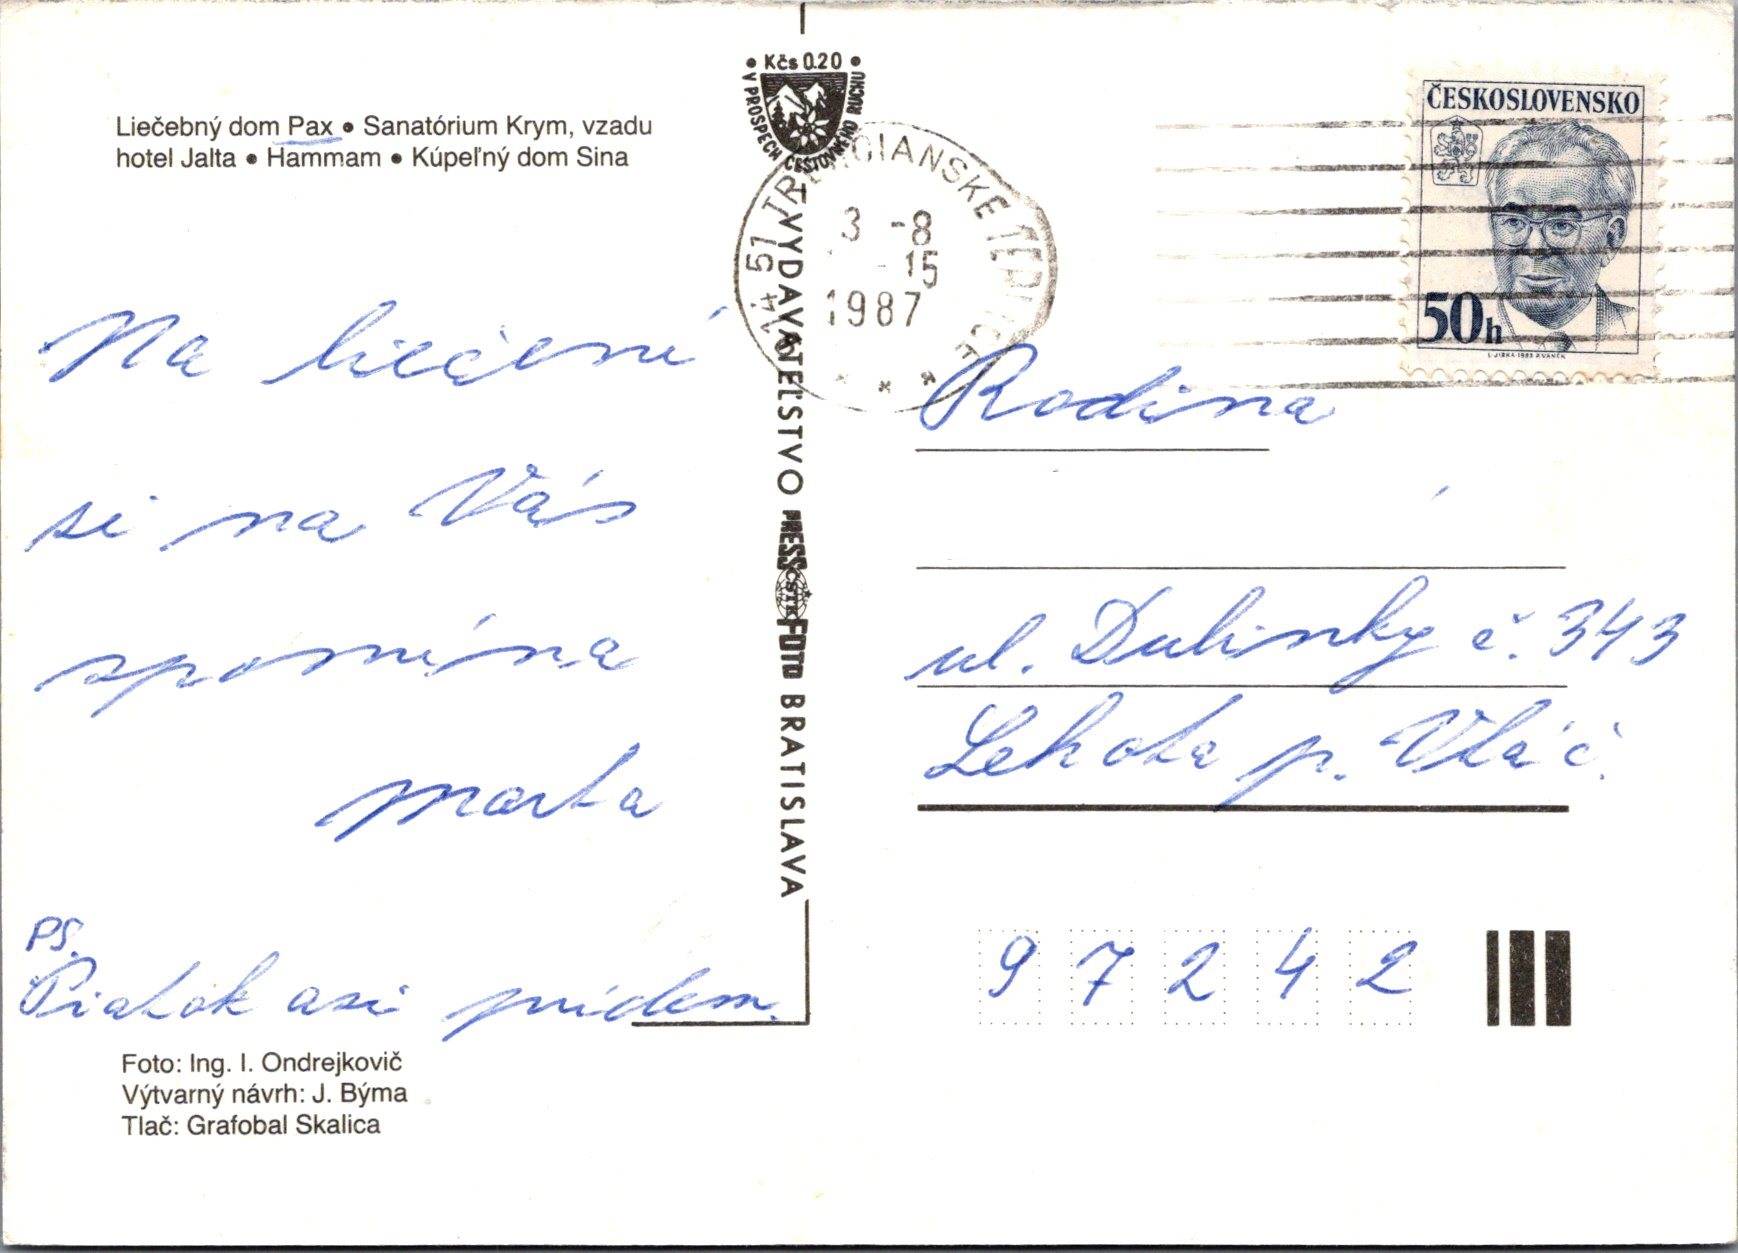 Liečebný dom Pax • Sanatórium Krym, vzadu
hotel Jalta • Hammam • Kúpeľný dom Sina
• Kčs 0.20 •
V PROSPECH CESTOVNÉHO RUCHU
914 51 TRENČIANSKE TEPLICE
3 -8
- 15
1987
* * *
ČESKOSLOVENSKO
50h
I. JIRKA 1983 A VANČK
Na liečení
si na Vás
spomína
Marta
PS.
Piatok asi prídem.
VYDAVATEĽSTVO PRESSFOTO BRATISLAVA
ČSTK
Rodina
ul. Dubinky č. 343
Lehota p. Vtáč.
97242
Foto: Ing. I. Ondrejkovič
Výtvarný návrh: J. Býma
Tlač: Grafobal Skalica